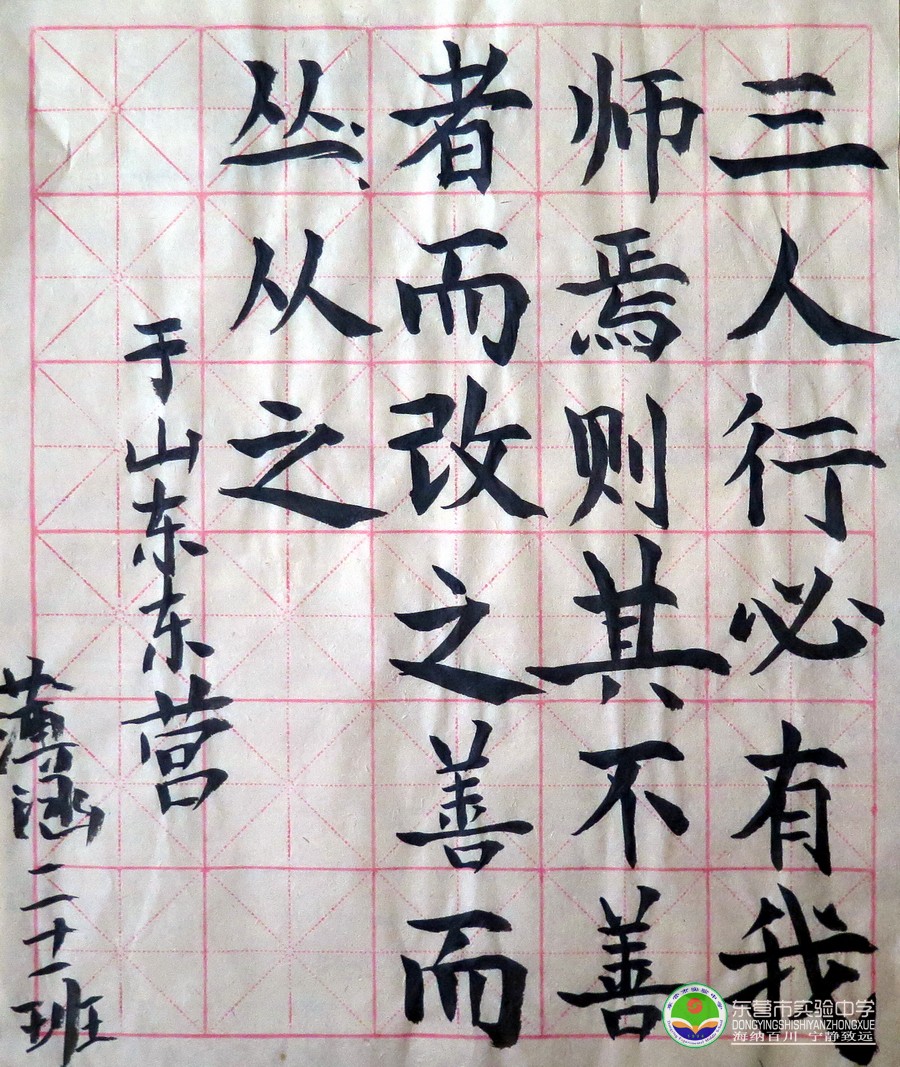 三人行必有我
师焉则其不善
者而改之善而
丛从之
于山东东营
薄涵二十一班
东营市实验中学
DONGYINGSHISHIYANZHONGXUE
海纳百川 宁静致远